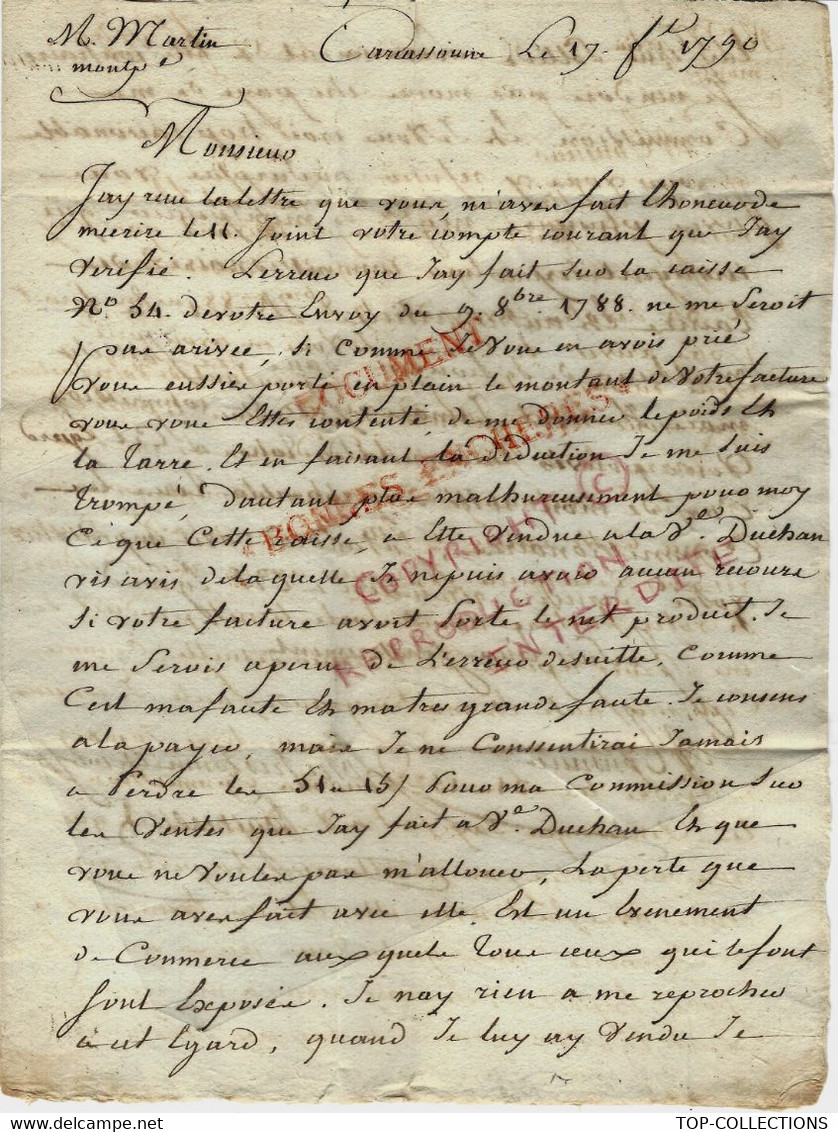 M. Martin
montp.
Carcassonne Le 17. f.er 1790
Monsieur
Jay reçu la lettre que vous m'aves fait Lhoneur de
mecrire le 11. Joint votre compte courant que Jay
Verifié. L'erreur que Jay fait sur la caisse
No. 54. de votre Envoy du 9. 8bre. 1788. ne me Seroit
pas arivée, Si Comme Je Vous en avois prié
vous eussies porté en plain le montant de Votre facture
vous vous Ettes contenté de me donner le poids Et
la Tarre. Et en faisant la deduction Je me suis
trompé, dautant plus malhureusement pour moy
C'est que Cette Caisse, a Ette Vendue a la Ve. Duchan
vis avis de laquelle Je ne puis avoir aucun recours
Si votre facture avoit Porté le net produit. Je
me Serois aperçu de L'erreur de suitte, Comme
C'est ma faute Et ma tres grande faute. Je consens
a la payer, mais Je ne Consentirai Jamais
a Perdre les 51 15 Pour ma Commission Sur
les Ventes que Jay fait a Ve. Duchan Et que
vous ne Voules pas m'allouer, La perte que
vous aves fait avec elle. Est un Evenement
de Commerce aux quels Tous ceux qui le font
Sont Exposés. Je nay rien a me reprocher
a cet Egard, quand Je luy ay Vendu Je
DOCUMENT
BONNES ENCHERES
COPYRIGHT (C)
REPRODUCTION
INTERDITE
TOP-COLLECTIONS